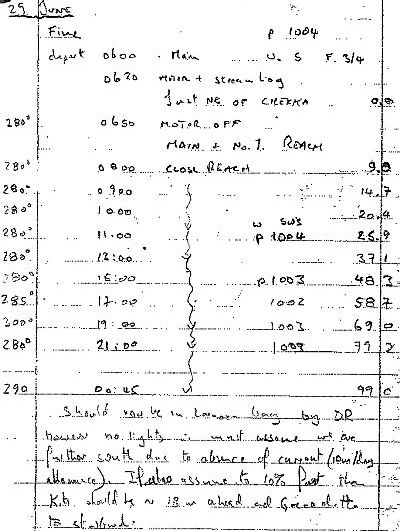 29 June
Fine P 1004
depart 0600 . Main W. S F. 3/4
0620 Motor + stream log
Just NE of CHEKKA 0.0
280° 0650 MOTOR OFF
MAIN + No. 1. REACH
280° 0800 CLOSE REACH 9.8
280° 0900 14.7
280° 1000 20.4
280° 11.00 W SW3 P 1004 25.9
280° 13:00 37 1
280° 15:00 P 1003 48 3
285° 17:00 1002 58 7
300° 19:00 1003 69 0
280° 21:00 79 2
290 00:45 99 0
Should now be in bay by DR
however no lights is must assume we are
further south due to absence of current (10m/day
allowance). If also assume to 10% fast then
should be 18 m ahead and
to starboard: